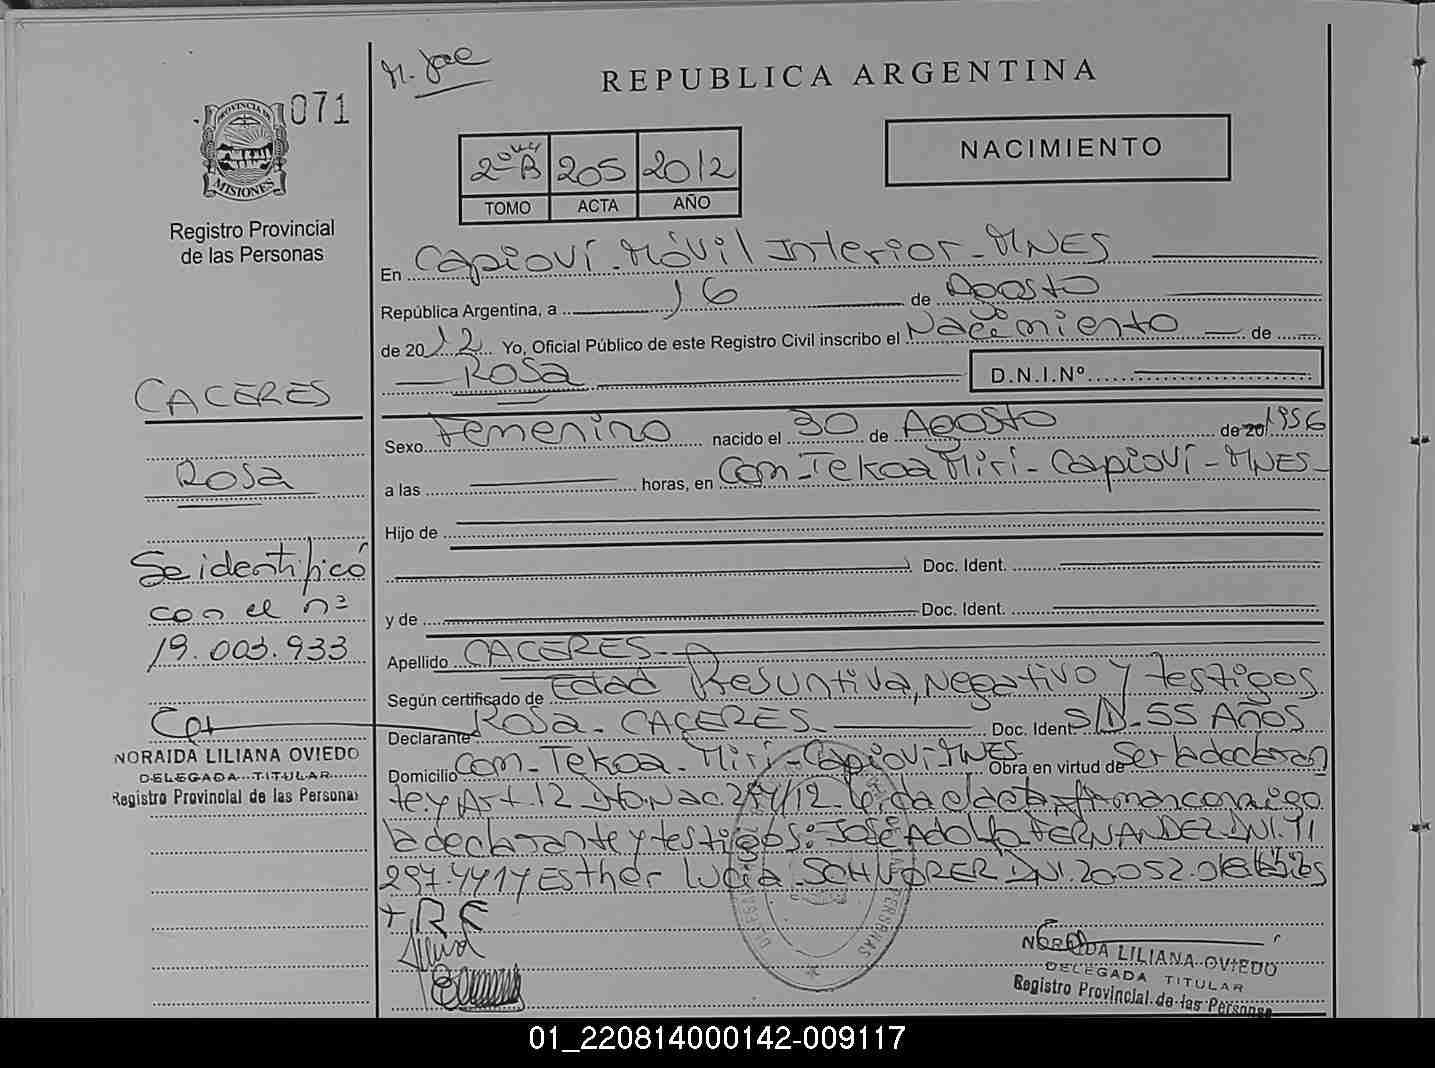 M. Jae
REPUBLICA ARGENTINA
071
PROVINCIA DE
MISIONES
Registro Provincial
de las Personas
2º B 205 2012
TOMO ACTA AÑO
NACIMIENTO
En Capioví - Móvil Interior - MNES
República Argentina, a 16 de Agosto
de 2012 Yo, Oficial Público de este Registro Civil inscribo el Nacimiento de
Rosa D.N.I.Nº
CACERES
Rosa
Se identificó
con el nº
19.003.933
NORAIDA LILIANA OVIEDO
DELEGADA TITULAR
Registro Provincial de las Personas
Sexo Femenino nacido el 30 de Agosto de 20 1956
a las horas, en Com - Tekoa Miri - Capioví - MNES -
Hijo de
Doc. Ident.
y de Doc. Ident.
Apellido CACERES
Según certificado de Edad Presuntiva, Negativo y testigos
Declarante Rosa - CACERES - Doc. Ident S/D - 55 Años
Domicilio Com - Tekoa - Miri - Capioví - MNES Obra en virtud de Ser la declaran
te y Art. 12 Dto. Nac. 274/12 - Leida el acta, firman conmigo
la declarante y testigos: José Adolfo FERNANDEZ DNI. 11
297.4414 Esther Lucia SCHVORER DNI. 20052.
+ R C
DELEGA PERSONAS
NORAIDA LILIANA OVIEDO
DELEGADA TITULAR
Registro Provincial de las Personas
01_220814000142-009117